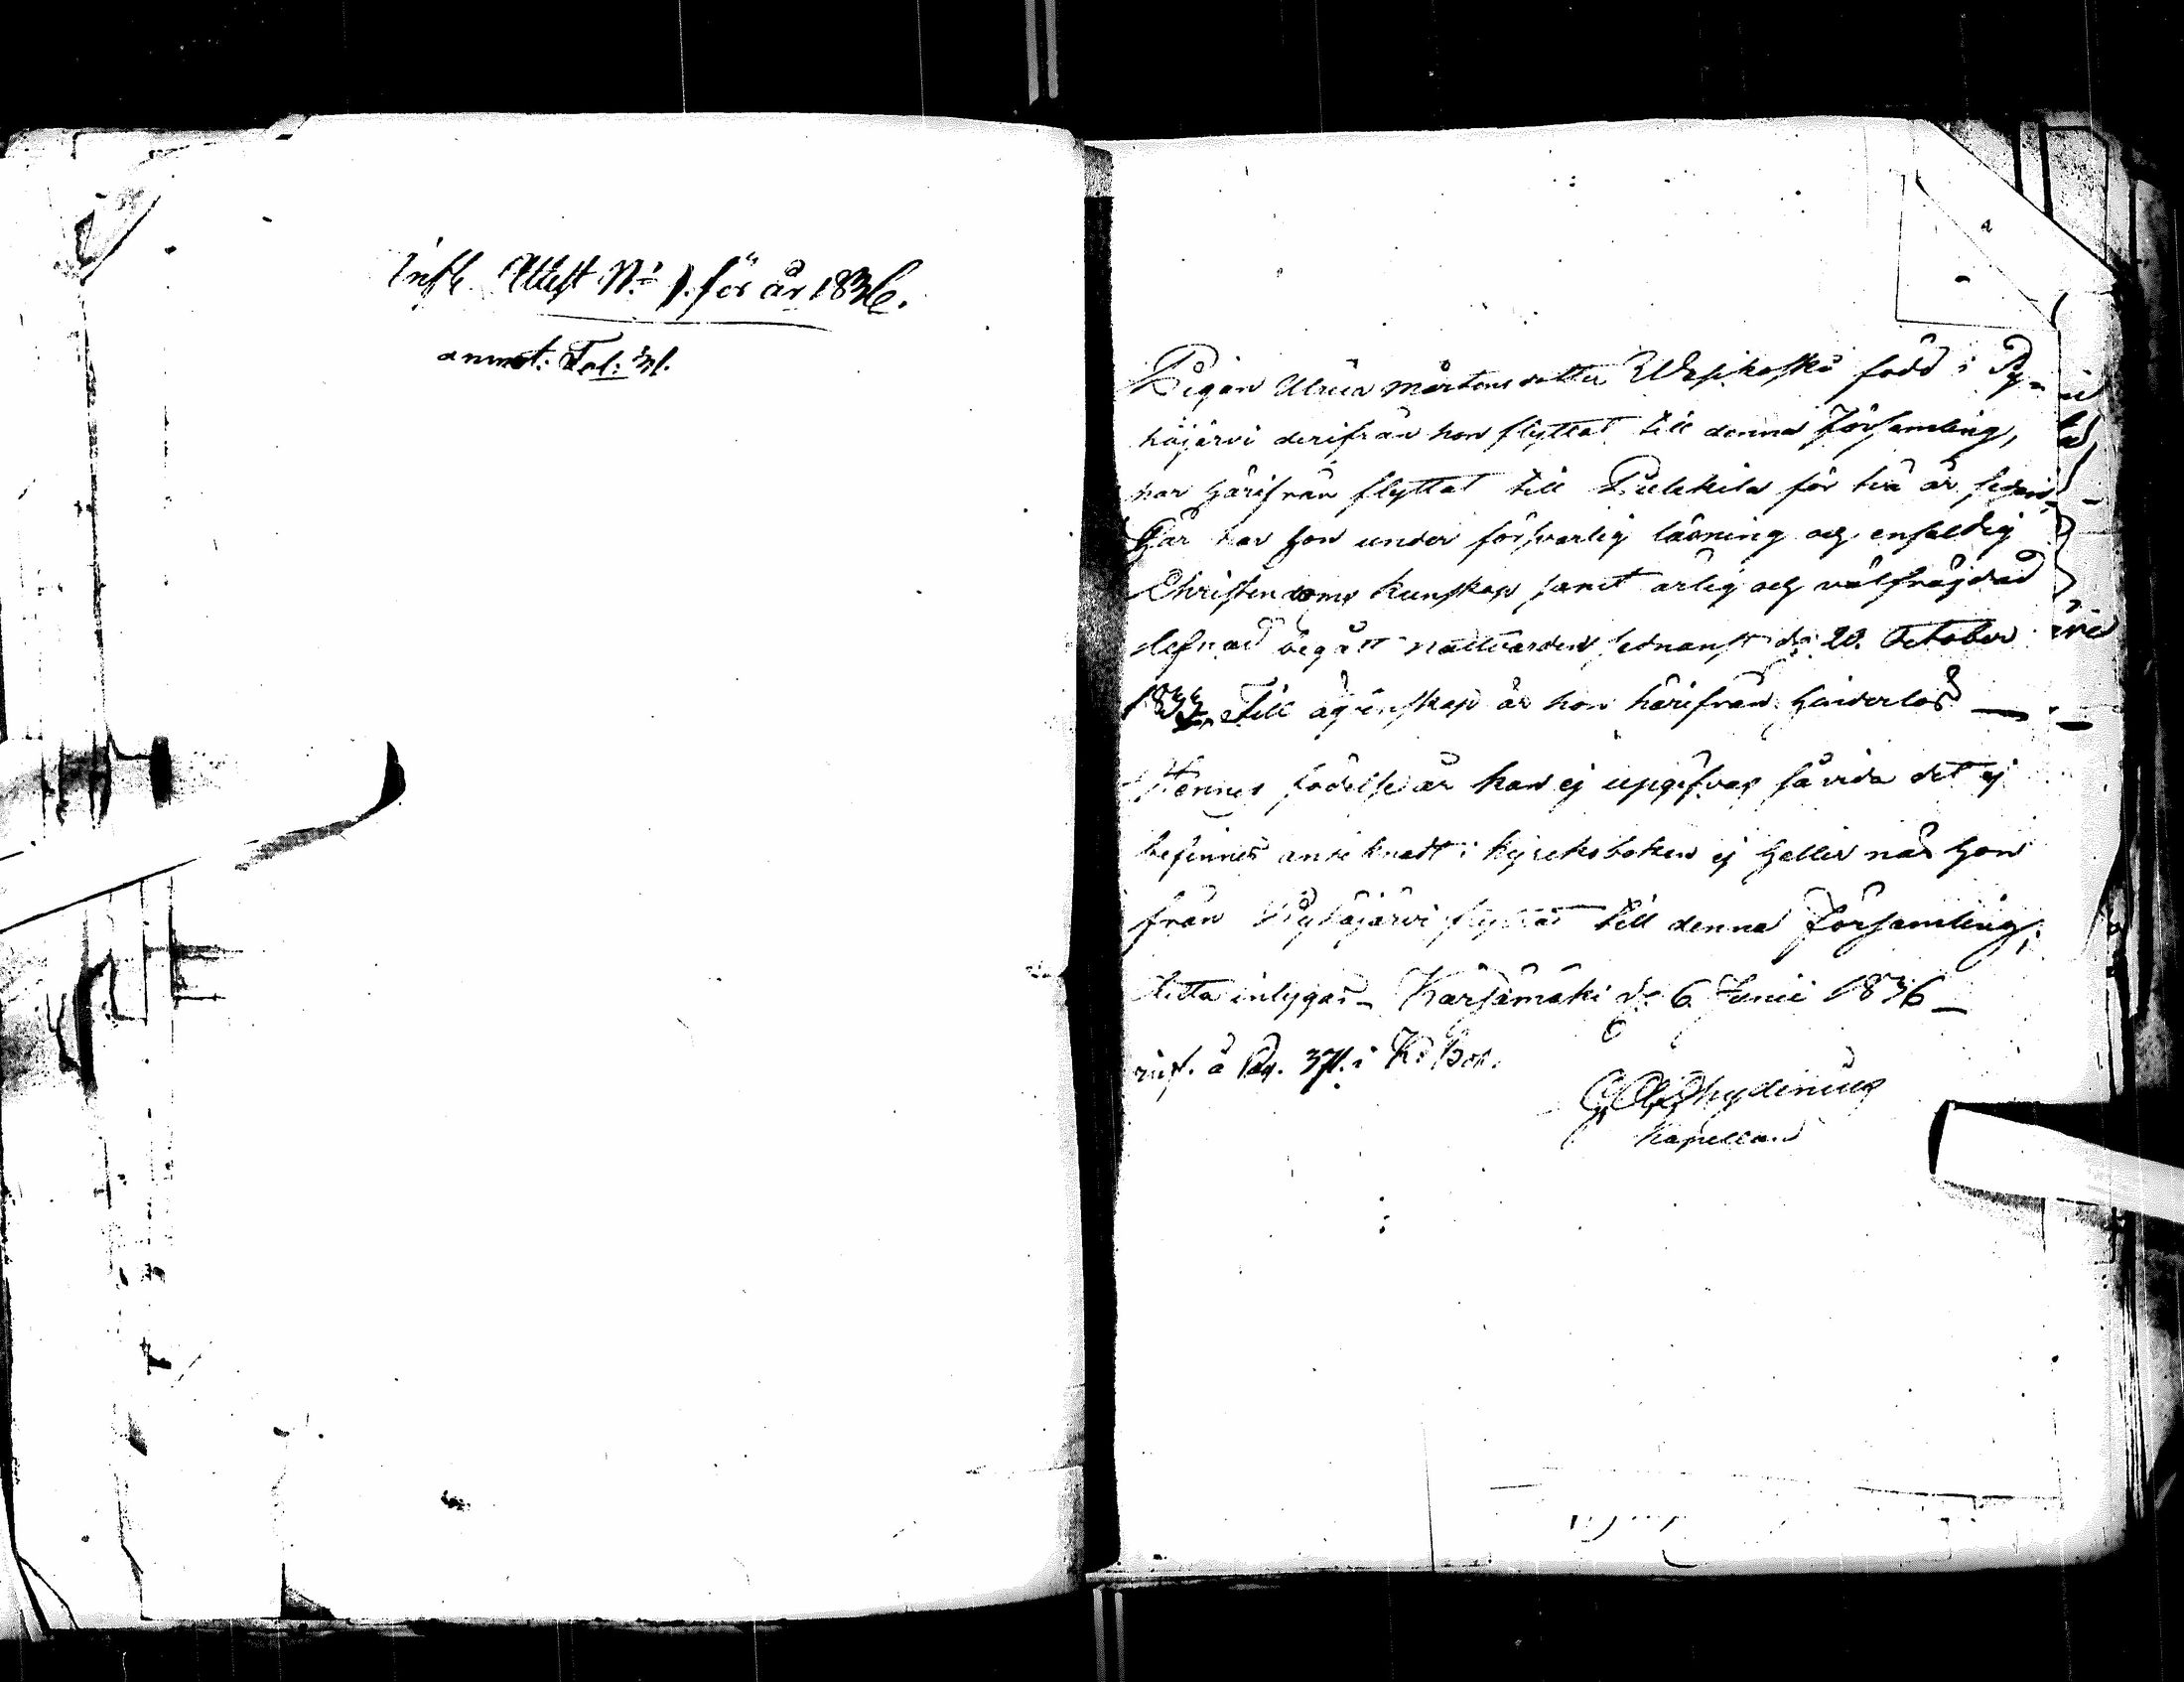 Attest No 1. för år 1836.
annot. Fol: 31.
Pigan Ulrica Mårtensdotter Wesikoski född i Py-
häjärvi derifrån hon flyttat till denna Församling,
har härifrån flyttat till Pulkkila för två år sedan,
Här har hon under försvarlig läsning och enfaldig
Christendoms kunskap samt ärlig och välfräjdad
lefnad begått nattvarden sednast d: 20. October
1833. Till ägtenskap är hon härifrån hinderlös —
Hennes födelse år kan ej upgifvas såvida det ej
befinnes antecknadt i kyrckoboken ej heller när hon
från Pyhäjärvi flyttat till denna Församling;
detta intygas — Kärsämäki d: 6 Junii 1836 —
å Pag. 371. i K: Bok.
Chydenius
Kapellan